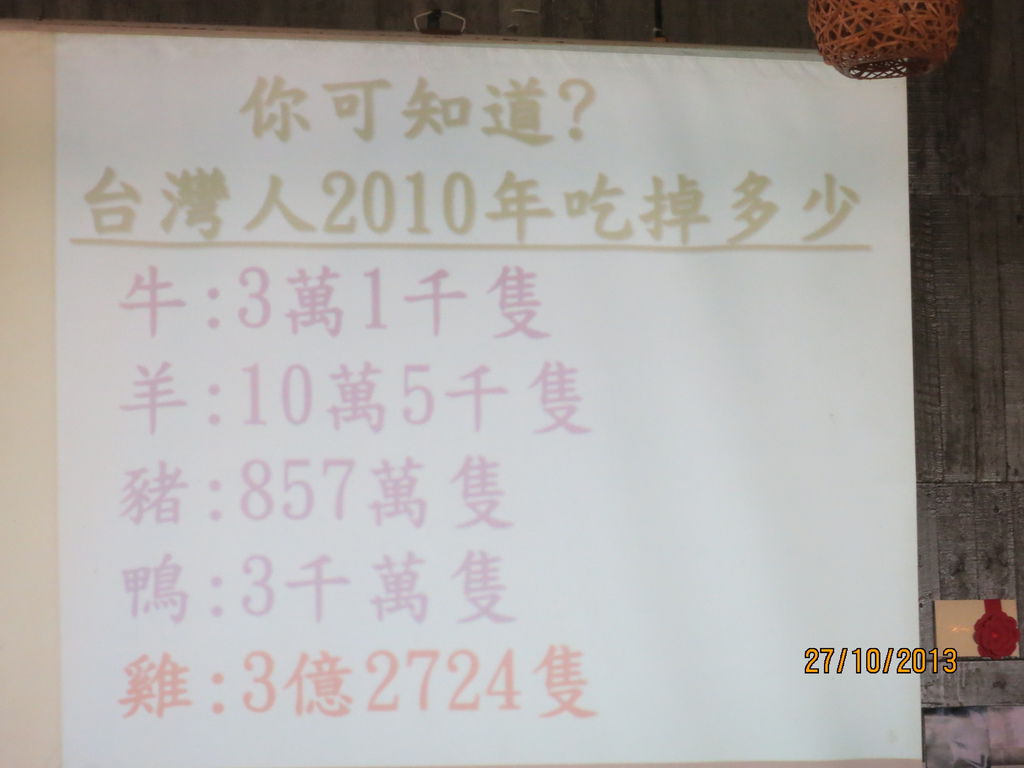 你可知道?
台灣人2010年吃掉多少
牛:3萬1千隻
羊:10萬5千隻
豬:857萬隻
鴨:3千萬隻
雞:3億2724隻
27/10/2013